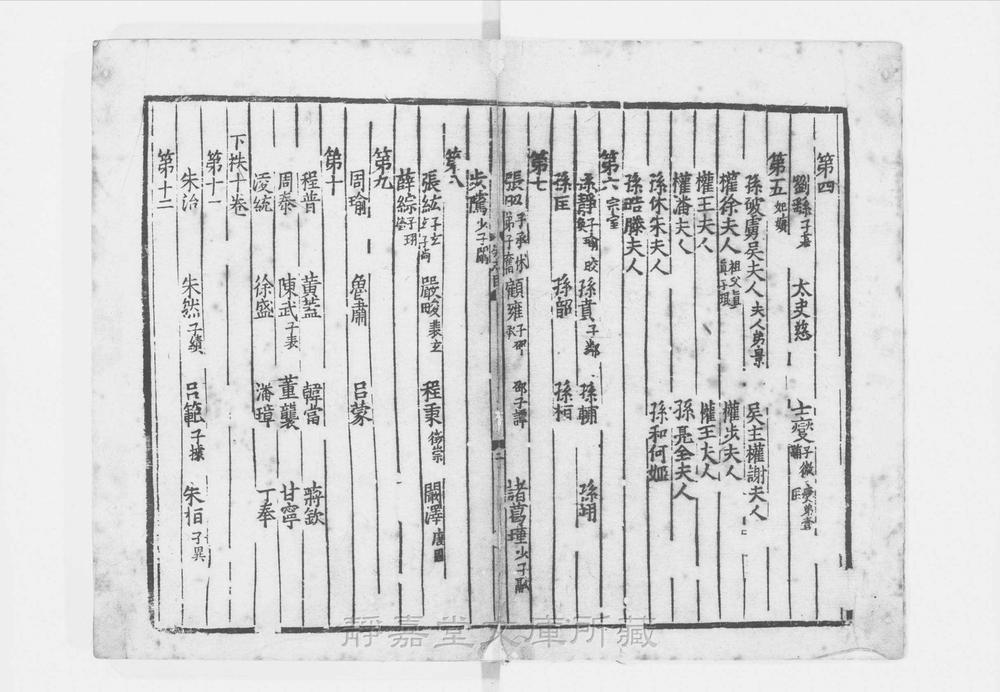 第四
劉繇子基 太史慈 士燮子徽 燮弟壹 䵋
第五妃嬪
孫破虜吳夫人夫人弟景 吳主權謝夫人
權徐夫人祖父真 真子琨 權步夫人
權王夫人 權王夫人
權潘夫人 孫亮全夫人
孫休朱夫人 孫和何姬
孫晧滕夫人
第六宗室
孫靜子瑜 皎 奐 孫賁子鄰 孫輔 孫翊
孫匡 孫韶 孫桓
第七
張昭子承 休 弟子奮 顧雍子邵 邵子譚 承 諸葛瑾少子融
步騭少子闡
第八
張紘子玄 玄子尚 嚴畯裴玄 程秉徵崇 闞澤唐固
薛綜子珝 瑩
第九
周瑜 魯肅 呂蒙
第十
程普 黃蓋 韓當 蔣欽
周泰 陳武子表 董襲 甘寧
凌統 徐盛 潘璋 丁奉
下袟十卷
第十一
朱治 朱然子績 呂範子據 朱桓子異
第十二
靜嘉堂文庫所藏